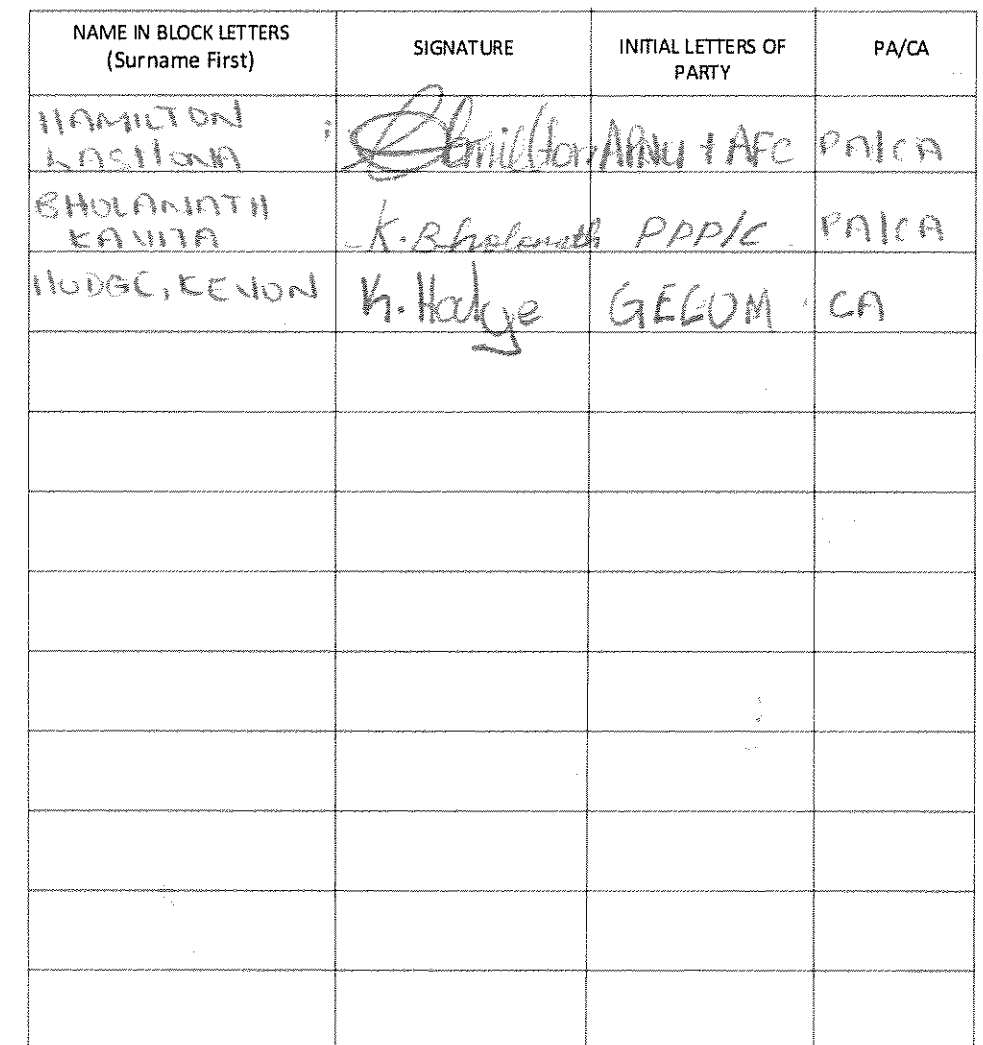 NAME IN BLOCK LETTERS
(Surname First)
SIGNATURE
INITIAL LETTERS OF
PARTY
PA/CA
HAMILTON
Hamilton
APNU + AFC
PA/CA
BHOLANATH
KAVITA
K. Bholanath
PPP/C
PA/CA
HODGE, KEVON
K. Hodge
GECOM
CA